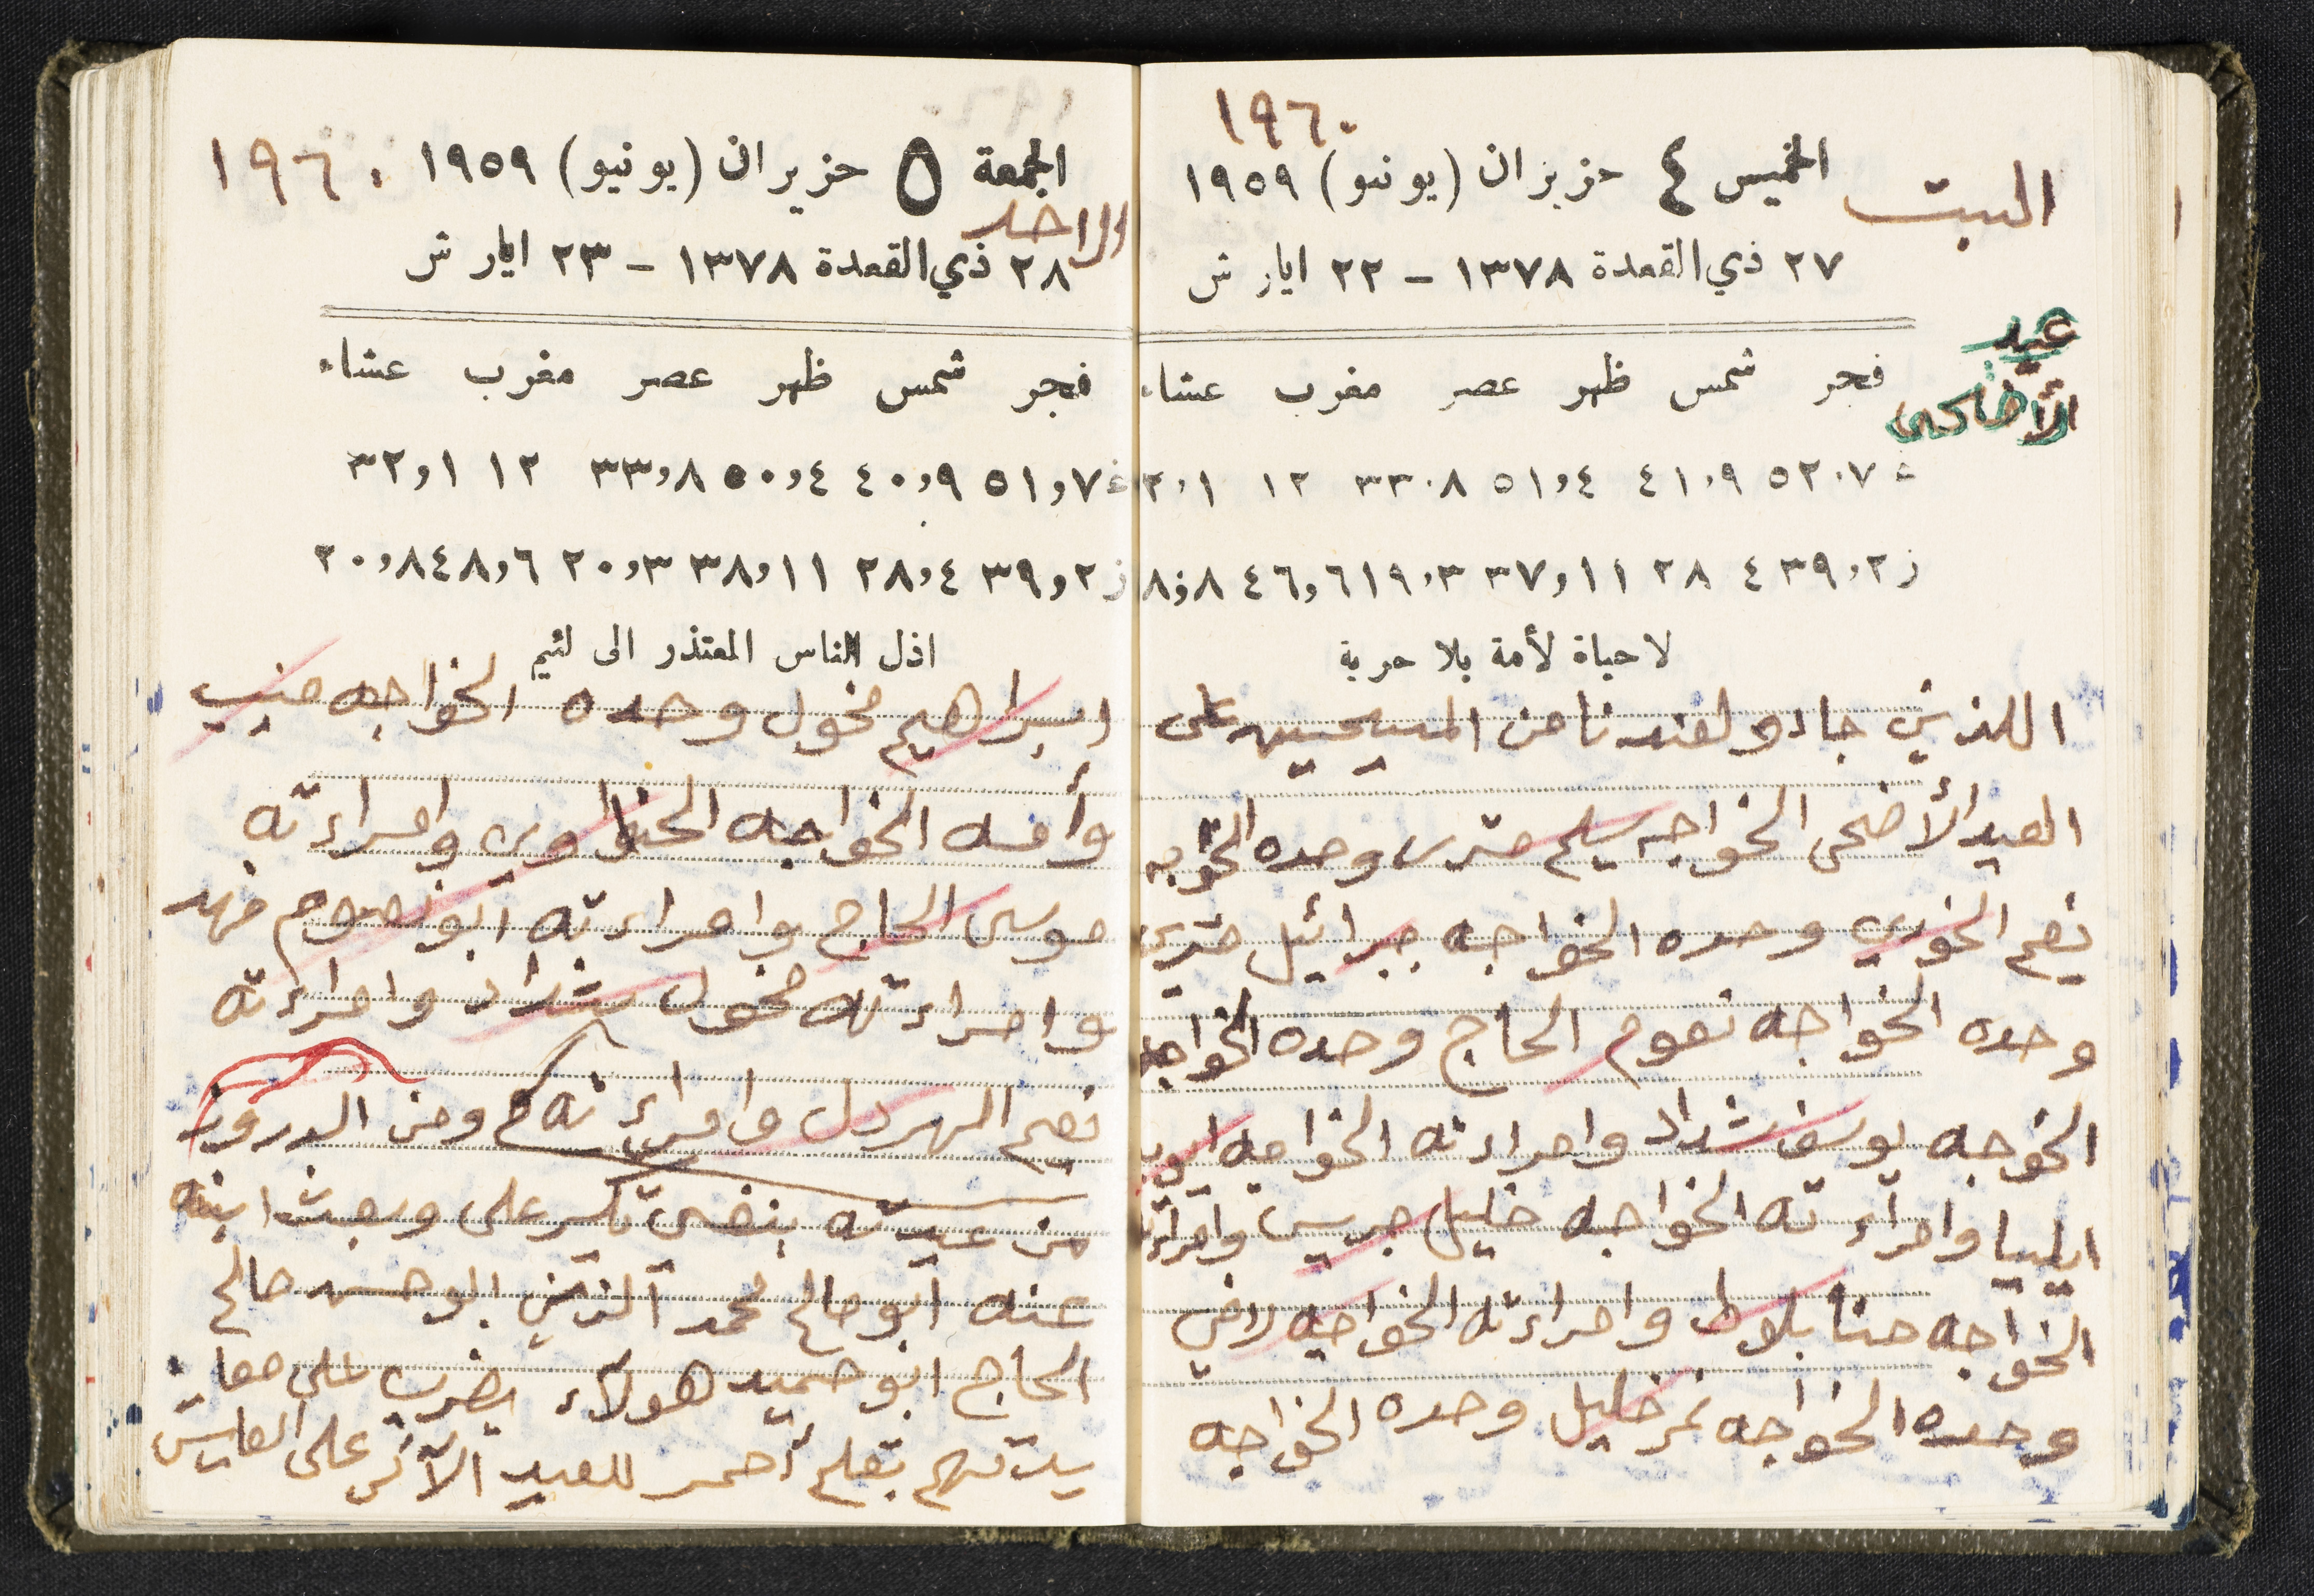 ١٩٦٠
السبت
الخميس ٤ حزيران (يونيو) ١٩٥٩
٢٧ ذي القعدة ١٣٧٨ - ٢٢ ايار ش
عيد
الأضحى
فجر شمس ظهر عصر مغرب عشاء
٥٢،٧ ٤١،٩ ٥١،٤ ٣٣،٨ ١٢ ٢،١
ز ٣٩،٢ ٤ ٢٨ ٣٧،١١ ١٩،٣ ٤٦،٦ ٨،٨
لا حياة لأمة بلا حرية
اللذين جاءو لعندنا من المسيحيين على
العيد الأضحى الخواجه سليم متري وحده الخواجه
نعيم الخوري وحده الخواجه جبرائيل متري
وحده الخواجه نعوم الحاج وحده الخواجه
الخوجه يوسف شداد وامراءته الخواجه ايوب
ايليا وامراءته الخواجه خليل جريس وامراءته
الخواجه حنا بلوط وامراءته الخواجه راضي
وحده الخواجه نمر خليل وحده الخواجه
الجمعة ٥ حزيران (يونيو) ١٩٥٩ ١٩٦٠
الاحد
٢٨ ذي القعدة ١٣٧٨ - ٢٣ ايار ش
فجر شمس ظهر عصر مغرب عشاء
غ ٥١،٧ ٤٠،٩ ٥٠،٤ ٣٣،٨ ١٢ ٣٢،١
ز ٣٩،٢ ٢٨،٤ ٣٨،١١ ٢٠،٣ ٤٨،٦ ٢٠،٨
اذل الناس المعتذر الى لئيم
ابراهيم مخول وحده الخواجه منيب
وأمه الخواجه الحناوي وامراءته
موسى الحاج وامراءته ابو نعوم فهد
وامراءته مخول شداد وامراءته
نعيم المهردل وامراءته ومن الدروز
من عيدته بنفسي تيسير علي وبعث ابنه
عنه ابو صالح محمد الذيني ابو حسن صالح
الحاج ابو حميد هولاء يضرب على معا
يدتهم بقلم أحمر للعيد الآخر على